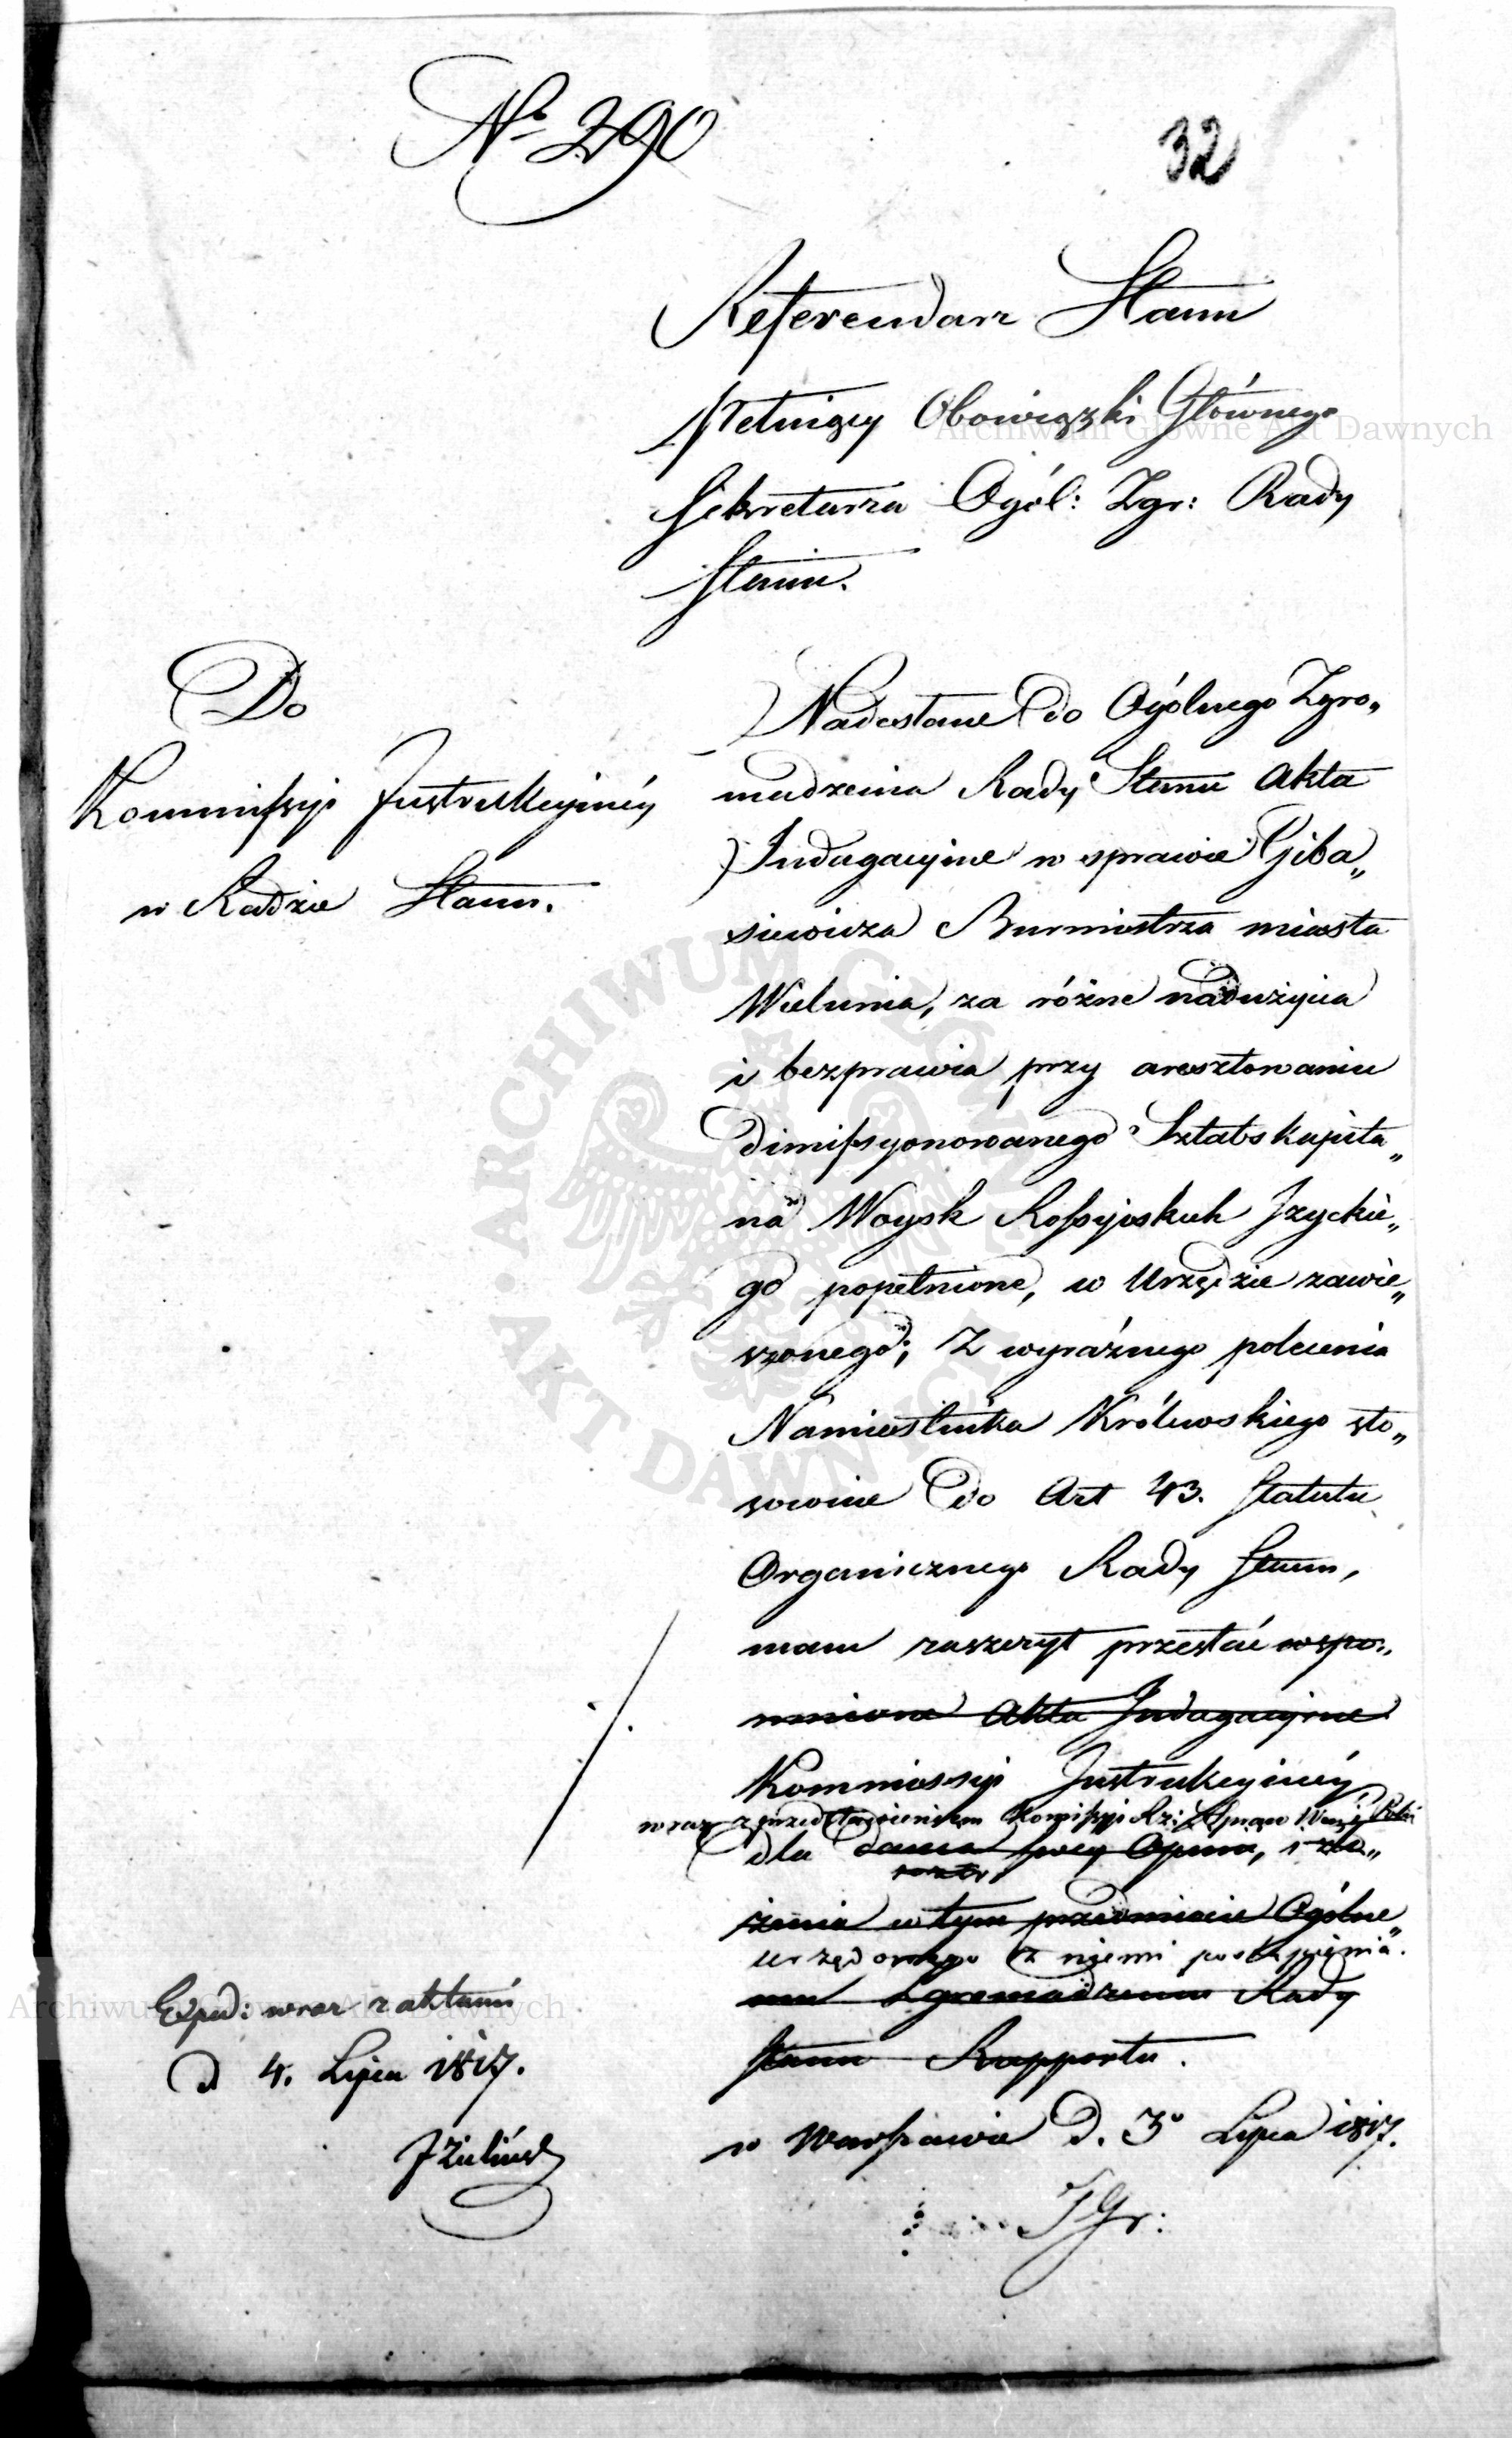 No 290
32
Referendarz Stanu
Pełniący Obowiązki Głównego
Sekretarza Ogól: Zgr: Rady
Stanu.
Do
Kommissyi Instrukcyinéy
w Radzie Stanu.
Nadesłane do Ogólnego Zgro„
madzenia Rady Stanu Akta
Indagacyine w sprawie Giba„
siewicza Burmistrza miasta
Wielunia, za różne nadużycia
i bezprawia przy aresztowaniu
dimissyonowanego Sztabskapita„
na Woysk Rossyiskich Izyckie„
go popełnione, w Urzędzie zawie„
szonego; z wyraźnego polecenia
Namiestnika Królewskiego sto„
sownie do Art 43. Statutu
Organicznego Rady Stanu,
mam zaszczyt przesłać wspo„
mnione Akta Indagacyine
Kommissyi Instrukcyinéy
wraz z przedstawieniem Komissyi Rz: Spraw Wew: i Policii
dla dania swey Opinii, i zło„
żenia w tym przedmiocie Ogólne„
urzędowego z niemi postąpienia.
mu Zgromadzeniu Rady
Stanu Rapportu.
w Warszawie d. 3o Lipca 1817.
Exped: wraz z aktami
d 4. Lipca 1817.
JZieliński
JGr:
Archiwum Główne Akt Dawnych
ARCHIWUM GŁÓWNE AKT DAWNYCH
Archiwum Główne Akt Dawnych